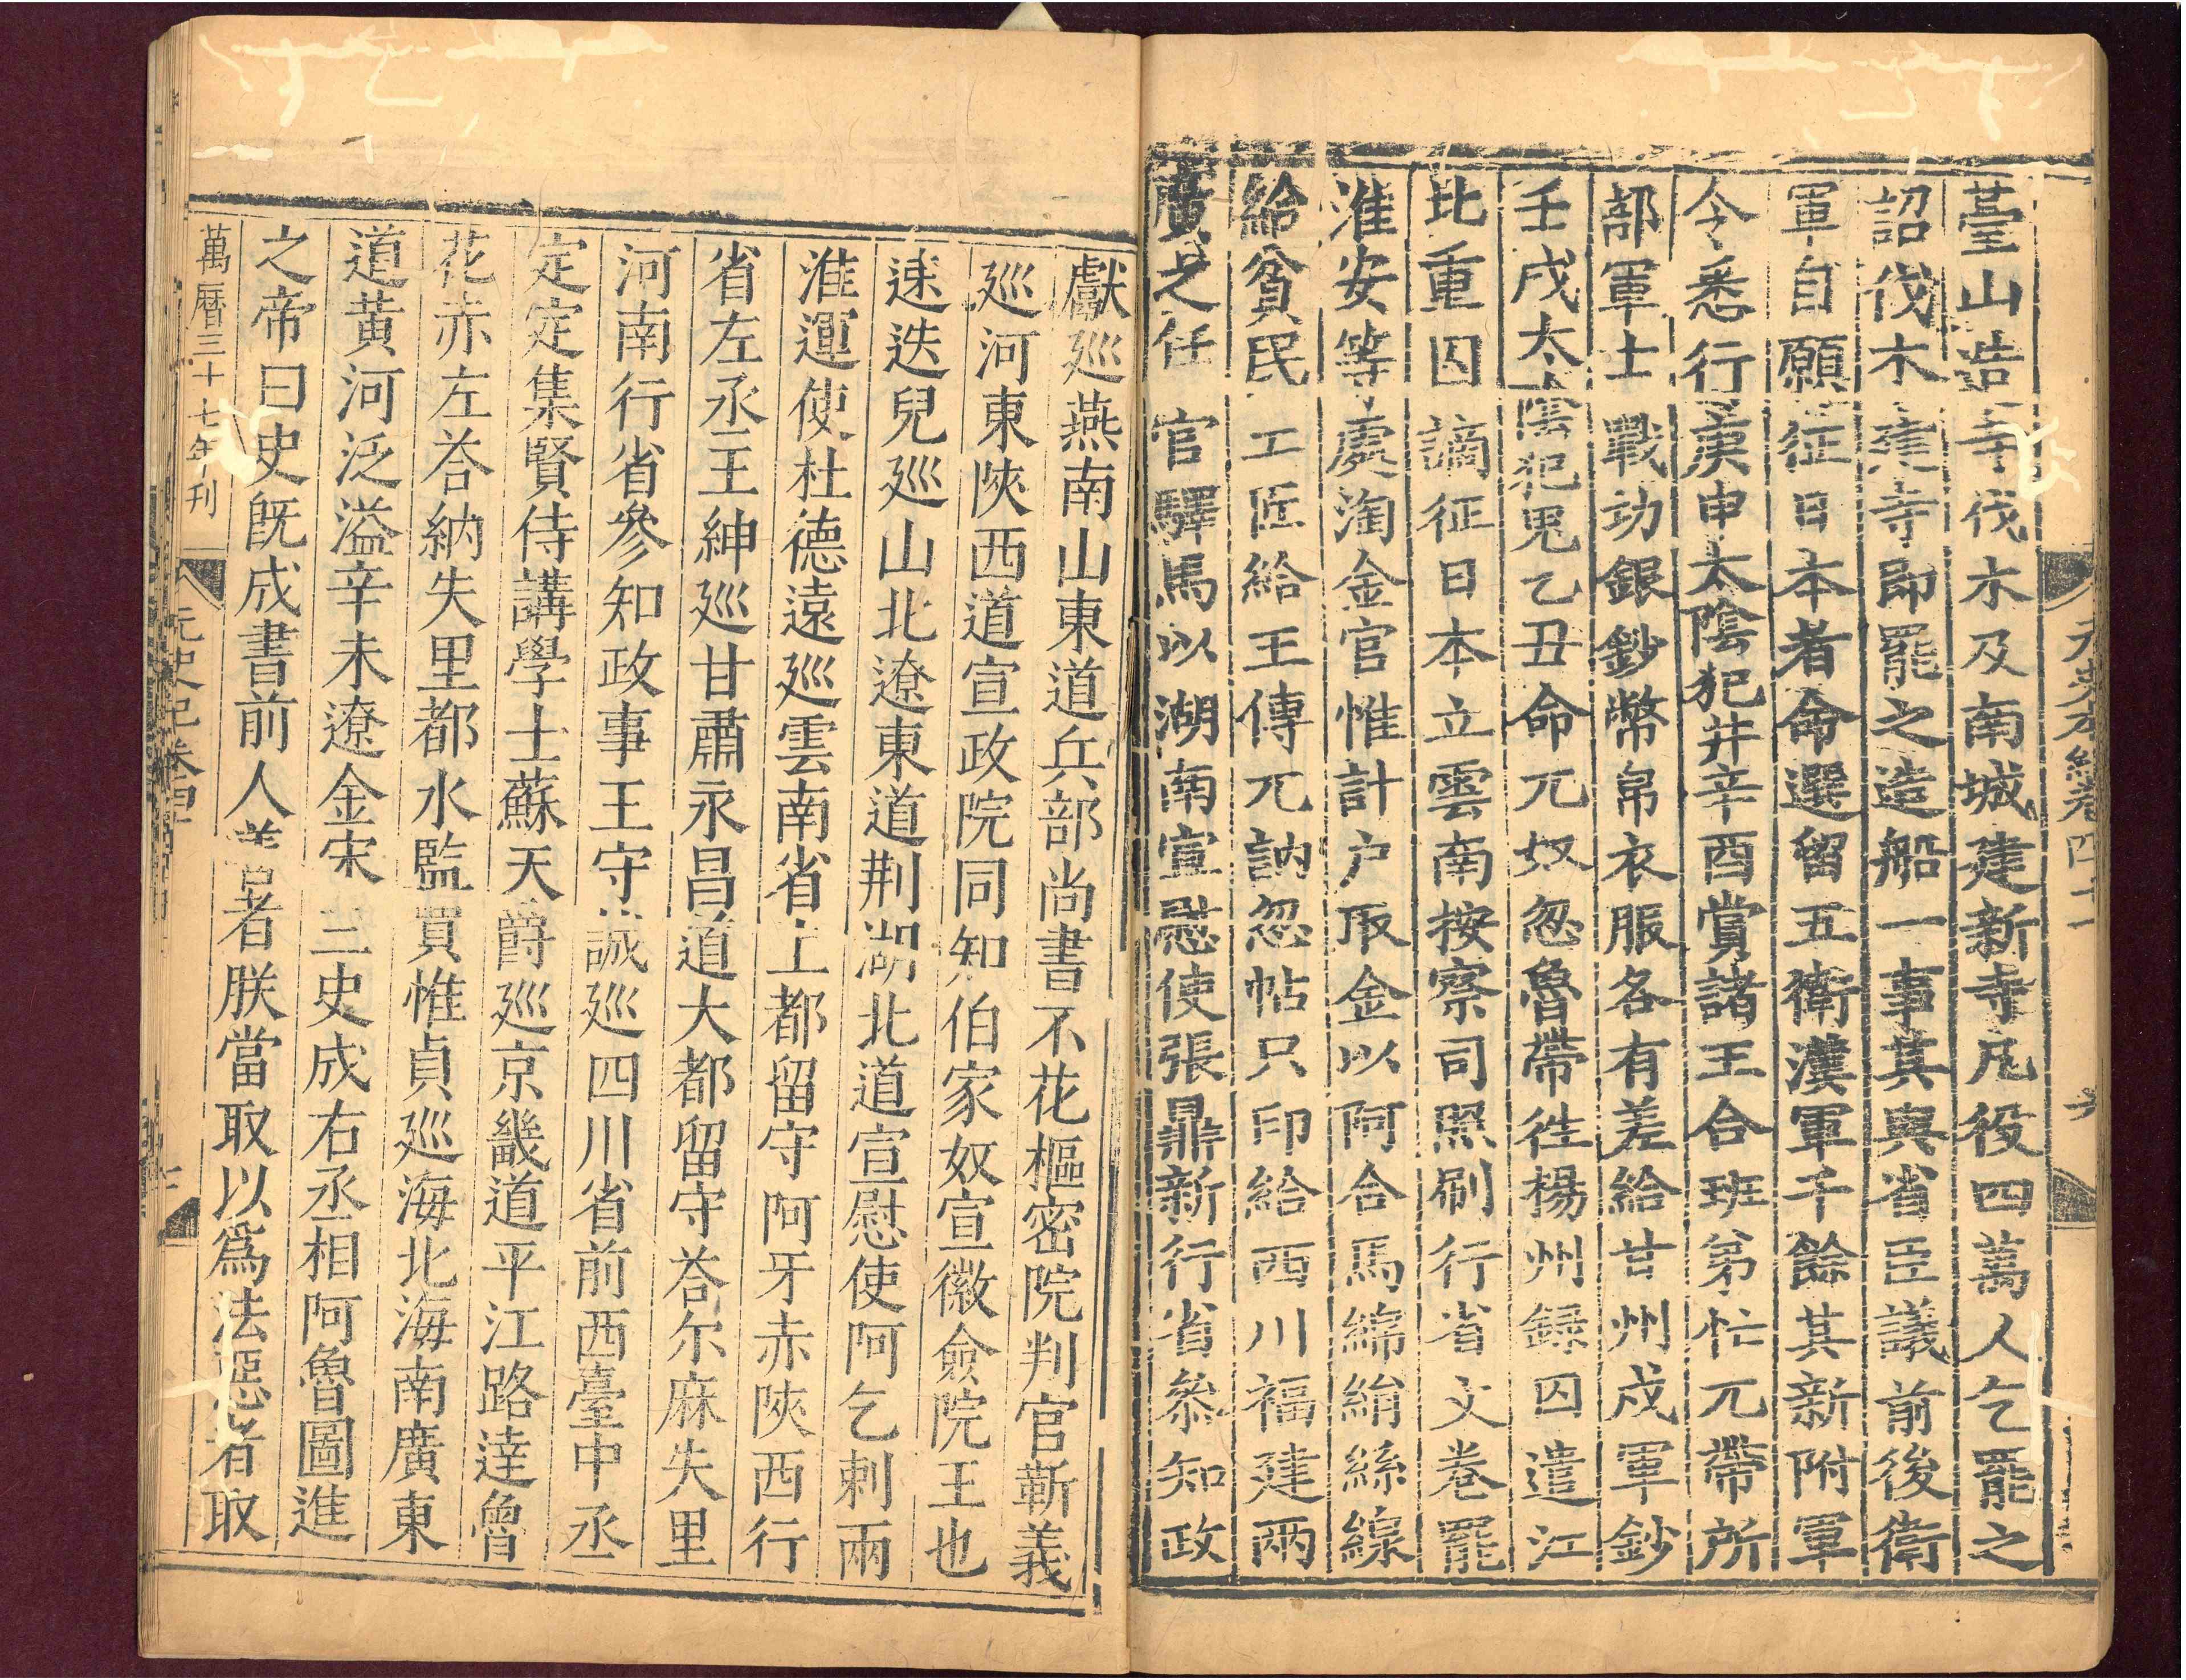 元史本紀卷四十一
六
臺山造寺伐木及南城建新寺凡役四萬人乞罷之
詔伐木建寺即罷之造船一事其與省臣議前後衛
軍自願征日本者命選留五衛漢軍千餘其新附軍
令悉行庚申太陰犯井辛酉賞諸王合班弟忙兀帶所
部軍士戰功銀鈔幣帛衣服各有差給甘州戍軍鈔
壬戌太陰犯鬼乙丑命兀奴忽魯帶往揚州錄囚遣江
北重囚謫征日本立雲南按察司照刷行省文卷罷
淮安等處淘金官惟計户取金以阿合馬綿絹絲線
給貧民工匠給王傅兀訥忽帖只印給西川福建兩
廣之任官驛馬以湖南宣慰使張鼎新行省參知政
獻巡燕南山東道兵部尚書不花樞密院判官靳義
巡河東陝西道宣政院同知伯家奴宣徽僉院王也
速迭兒巡山北遼東道荆湖北道宣慰使阿乞剌兩
淮運使杜德遠巡雲南省上都留守阿牙赤陝西行
省左丞王紳巡甘肅永昌道大都留守荅尔麻失里
河南行省參知政事王守誠巡四川省前西臺中丞
定定集賢侍講學士蘇天爵巡京畿道平江路達魯
花赤左荅納失里都水監賈惟貞巡海北海南廣東
道黄河泛溢辛未遼金宋三史成右丞相阿魯圖進
之帝曰史既成書前人善者朕當取以爲法惡者取
萬曆三十七年刊
元史紀卷四十一